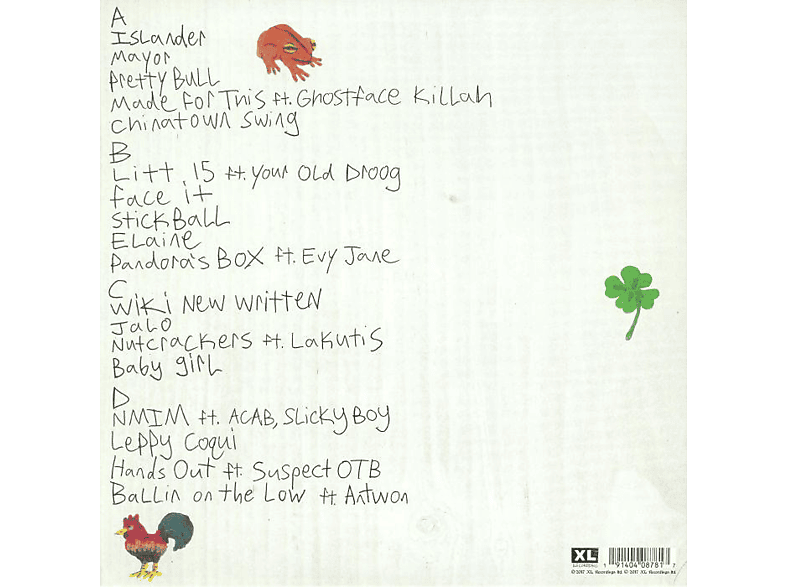 A
Islander
Mayor
Pretty Bull
Made For This ft. Ghostface Killah
Chinatown Swing
B
Litt 15 ft. Your Old Droog
Face it
Stick Ball
Elaine
Pandora's Box ft. Evy Jane
C
Wiki New Written
Jalo
Nutcrackers ft. Lakutis
Baby girl
D
NMIM ft. ACAB, Slicky Boy
Leppy Coqui
Hands Out ft. Suspect OTB
Ballin on the Low ft. Antwon
XL
RECORDINGS
1 91404 08781 7
℗ 2017 XL Recordings Ltd © 2017 XL Recordings Ltd